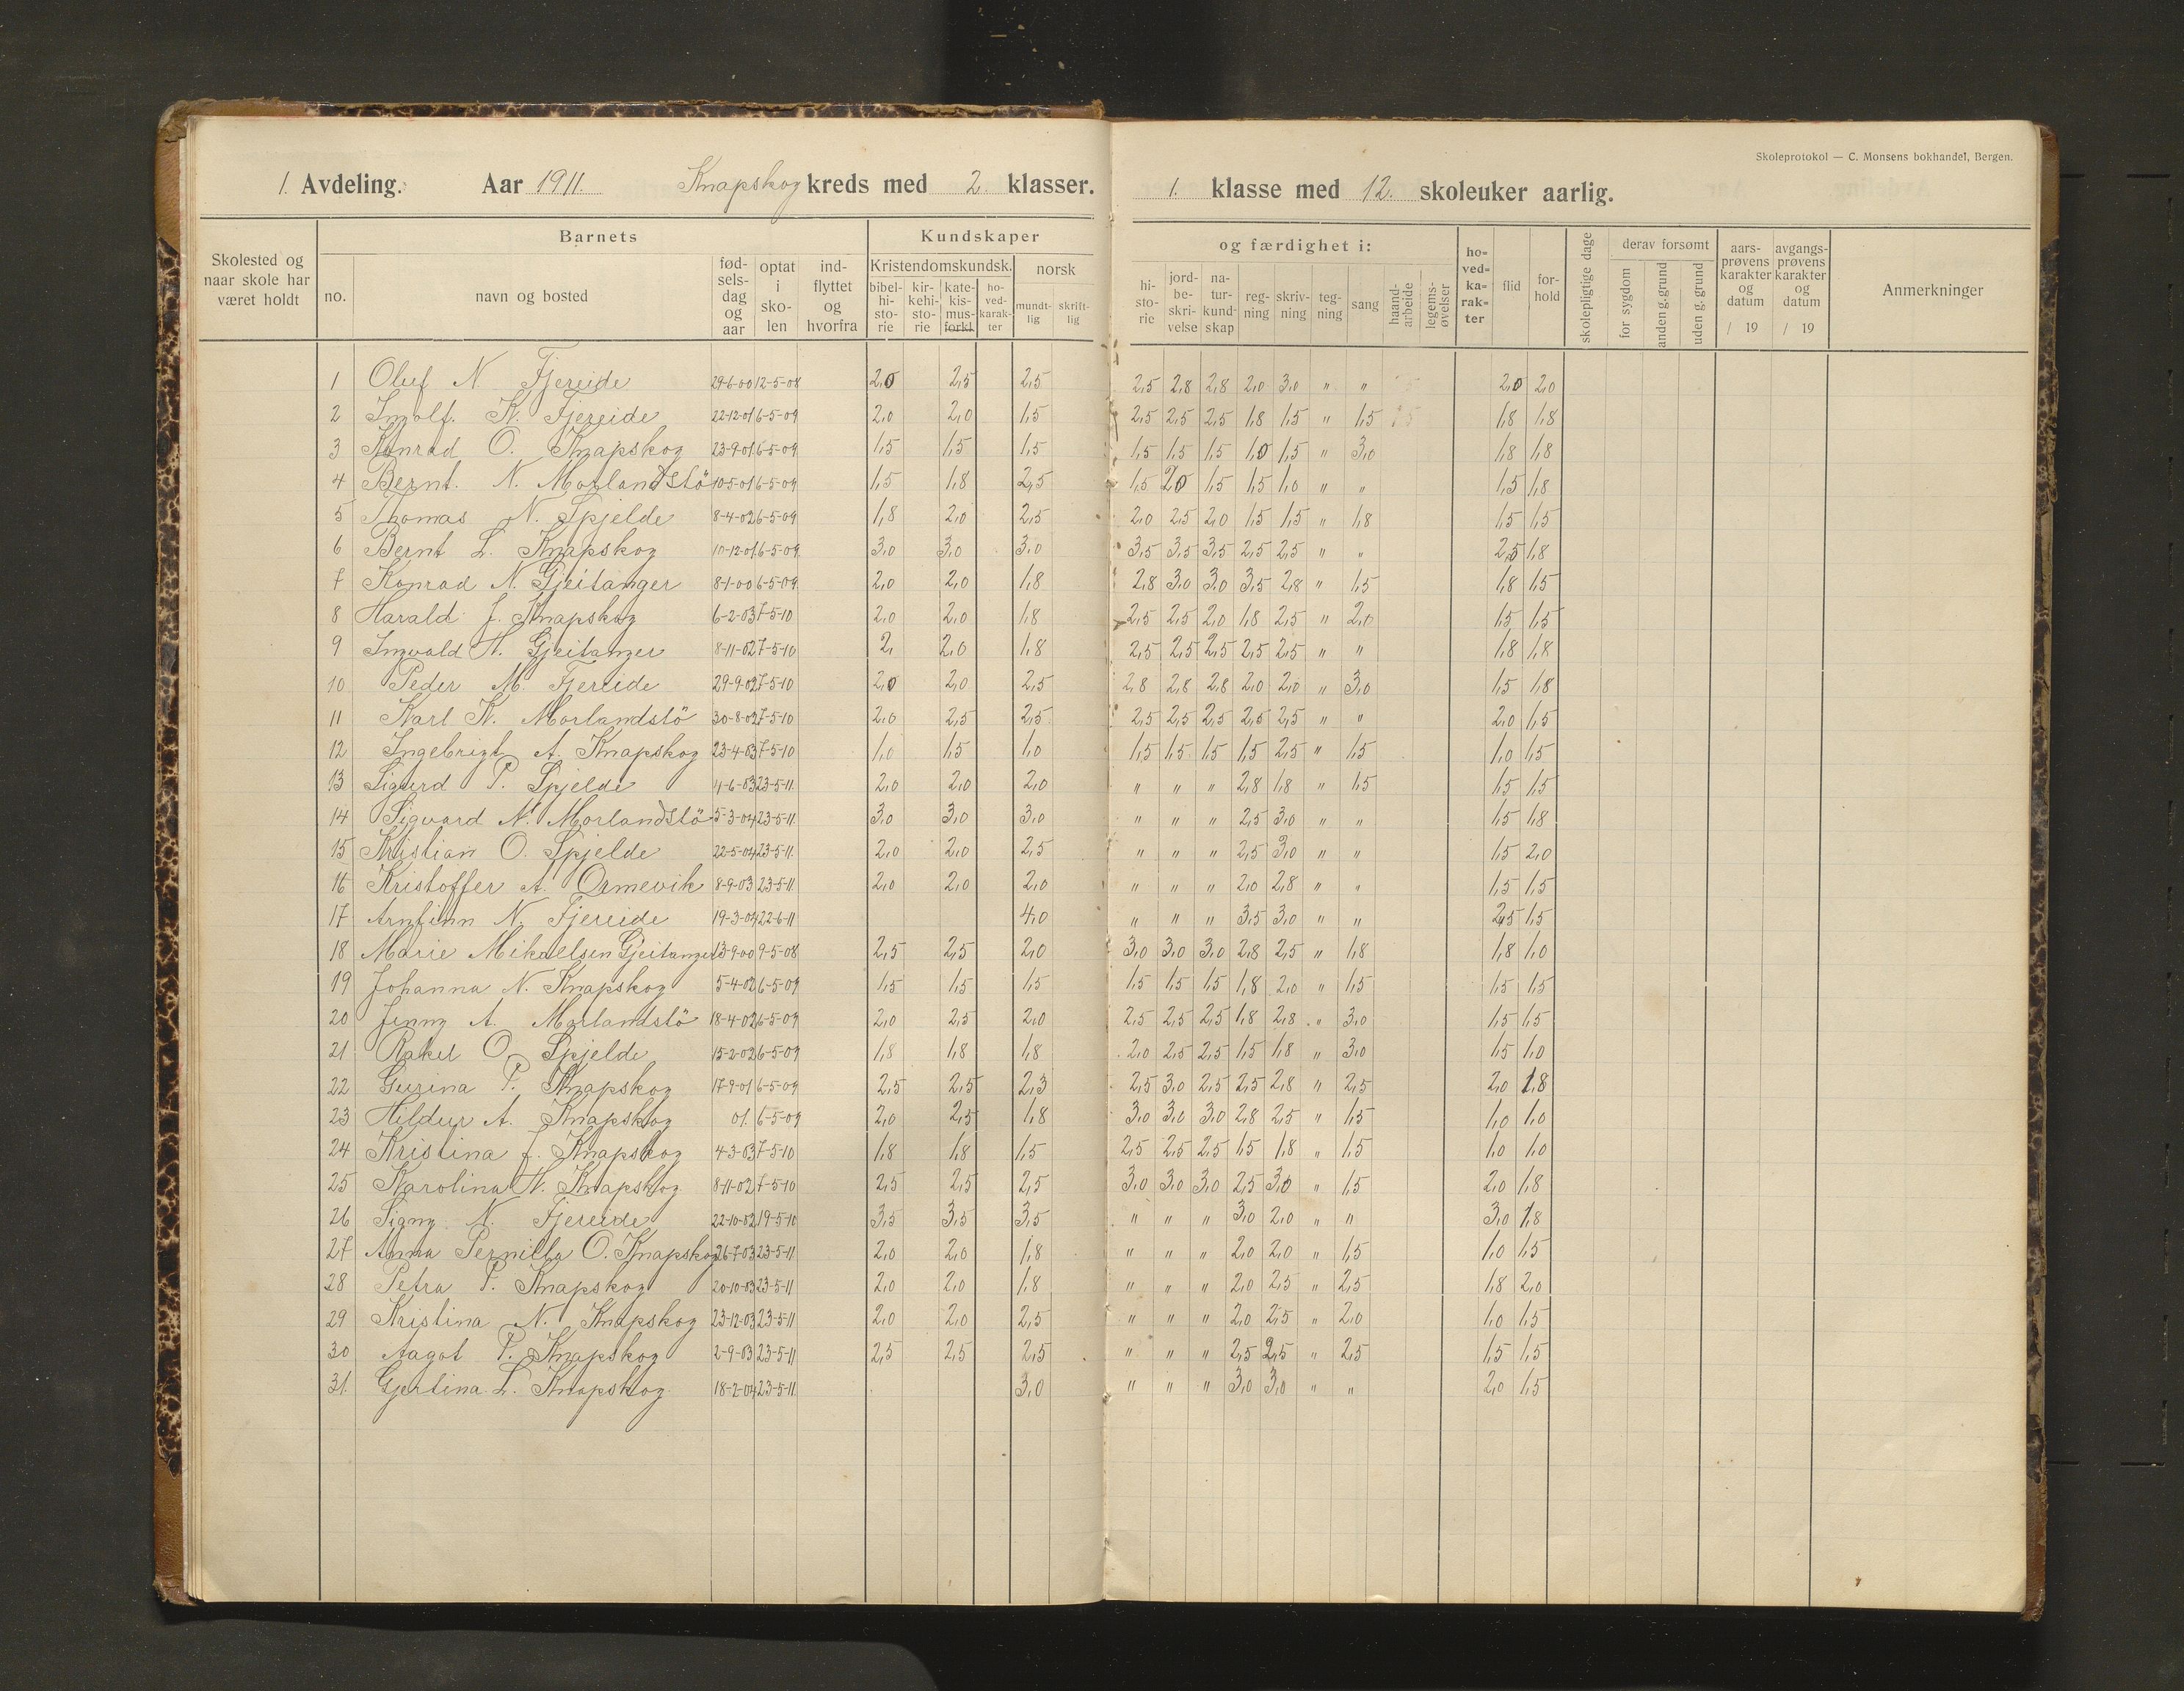 Skoleprotokol — C. Monsens bokhandel, Bergen.
1. Avdeling. Aar 1911. Knapskog kreds med 2. klasser. 1. klasse med 12. skoleuker aarlig.
Skolested og naar skole har været holdt
Barnets
no. navn og bosted fødselsdag og aar optat i skolen indflyttet og hvorfra
Kundskaper
Kristendomskundsk. norsk
bibelhistorie kirkehistorie katekismusforkl. hovedkarakter mundtlig skriftlig
og færdighet i:
historie jordbeskrivelse naturkundskap regning skrivning tegning sang haandarbeide legemsøvelser
hovedkarakter flid forhold skolepligtige dage
derav forsømt
for sygdom anden g. grund uden g. grund
aarsprøvens karakter og datum / 19 avgangsprøvens karakter og datum / 19 Anmerkninger
1 Oluf N. Fjereide 29-6-00 12-5-08 2,0 2,5 2,5 2,5 2,8 2,8 2,0 3,0 " " 2,0 2,0
2 Ingolf. K. Fjereide 22-12-01 6-5-09 2,0 2,0 1,5 2,5 2,5 2,5 1,8 1,5 " 1,5 1,8 1,8
3 Konrad O. Knapskog 23-9-01 6-5-09 1,5 1,5 1,5 1,5 1,5 1,5 1,0 1,5 " 3,0 1,8 1,8
4 Bernt. N. Morlandstö 10-5-01 6-5-09 1,5 1,8 2,5 1,5 2,0 1,5 1,5 1,0 " " 1,5 1,8
5 Thomas N. Spjelde 8-4-02 6-5-09 1,8 2,0 2,5 2,0 2,5 2,0 1,5 1,5 " 1,8 1,5 1,5
6 Bernt L. Knapskog 10-12-01 6-5-09. 3,0 3,0 3,0 3,5 3,5 3,5 2,5 2,5 " " 2,5 1,8
7 Konrad N. Gjeitanger 8-1-00 6-5-09. 2,0 2,0 1,8 2,8 3,0 3,0 3,5 2,8 " 1,5 1,8 1,5
8 Harald J. Knapskog 6-2-03 7-5-10 2,0 2,0 1,8 2,5 2,5 2,0 1,8 2,5 " 2,0 1,5 1,5
9 Ingvald H. Gjeitanger 8-11-02 7-5-10 2, 2,0 1,8 2,5 2,5 2,5 2,5 2,5 " " 1,8 1,8
10 Peder M. Fjereide 29-9-02 7-5-10 2,0 2,0 2,5 2,8 2,8 2,8 2,0 2,0 " 3,0 1,5 1,8
11 Karl K. Morlandstö 30-8-02 7-5-10 2,0 2,5 2,5 2,5 2,5 2,5 2,5 2,5 " " 2,0 1,5
12 Ingebrigt A. Knapskog 23-4-03 7-5-10 1,0 1,5 1,0 1,5 1,5 1,5 1,5 2,5 " 1,5 1,0 1,5
13 Sigurd P. Spjelde 4-6-03 23-5-11. 2,0 2,0 2,0 " " " 2,8 1,8 " 1,5 1,5 1,5
14 Sigvard N. Morlandstö 5-3-04 23-5-11. 3,0 3,0 3,0 " " " 2,5 3,0 " " 1,5 1,8
15 Kristian O. Spjelde 22-5-04 23-5-11. 2,0 2,0 2,5 " " " 2,5 3,0 " " 1,5 2,0
16 Kristoffer A. Ormevik 8-9-03 23-5-11 2,0 2,0 2,0 " " " 2,0 2,8 " " 1,5 1,5
17 Arnfinn N. Fjereide 19-3-04 22-6-11 4,0 " " " 3,5 3,0 " " 2,5 1,5
18 Marie Mikaelsen Gjeitanger 13-9-00 9-5-08 2,5 2,5 2,0 3,0 3,0 3,0 2,8 2,5 " 1,8 1,8 1,0
19 Johanna N. Knapskog 5-4-02 6-5-09 1,5 1,5 1,5 1,5 1,5 1,5 1,8 2,0 " 1,5 1,5 1,5
20 Jenny A. Morlandstö 18-4-02 6-5-09 2,0 2,5 2,0 2,5 2,5 2,5 1,8 2,8 " 3,0 1,5 1,5
21 Rakel O. Spjelde 15-2-02 6-5-09 1,8 1,8 1,8 2,0 2,5 2,5 1,5 1,8 " 3,0 1,5 1,0
22 Gurina P. Knapskog 17-9-01 6-5-09 2,5 2,5 2,3 2,5 3,0 2,5 2,5 2,8 " 2,5 2,0 1,8
23 Hildur A. Knapskog 01. 6-5-09 2,0 2,5 1,8 3,0 3,0 3,0 2,8 2,5 " 1,5 1,0 1,0
24 Kristina J. Knapskog 4-3-03 7-5-10 1,8 1,8 1,5 2,5 2,5 2,5 1,5 1,8 " 1,5 1,0 1,0
25 Karolina H. Knapskog 8-11-02 7-5-10 2,5 2,5 2,5 3,0 3,0 3,0 2,5 3,0 " 1,5 2,0 1,8
26 Signy N. Fjereide 22-10-02 19-5-10 3,5 3,5 3,5 " " " 3,0 2,0 " " 3,0 1,8
27 Anna Pernilla O. Knapskog 26-7-03 23-5-11 2,0 2,0 1,8 " " " 2,0 2,0 " 1,5 1,0 1,5
28 Petra P. Knapskog 20-10-03 23-5-11 2,0 2,0 1,8 " " " 2,0 2,5 " 2,5 1,8 2,0
29 Kristina N. Knapskog 23-12-03 23-5-11 2,0 2,0 2,5 " " " 2,0 2,5 " 2,0 1,0 1,5
30 Aagot P. Knapskog 2-9-03 23-5-11 2,5 2,5 2,5 " " " 2,5 2,5 " 2,5 1,5 1,5
31. Gjertina L. Knapskog 18-2-04 23-5-11. 3,0 " " " 3,0 3,0 " " 2,0 1,5